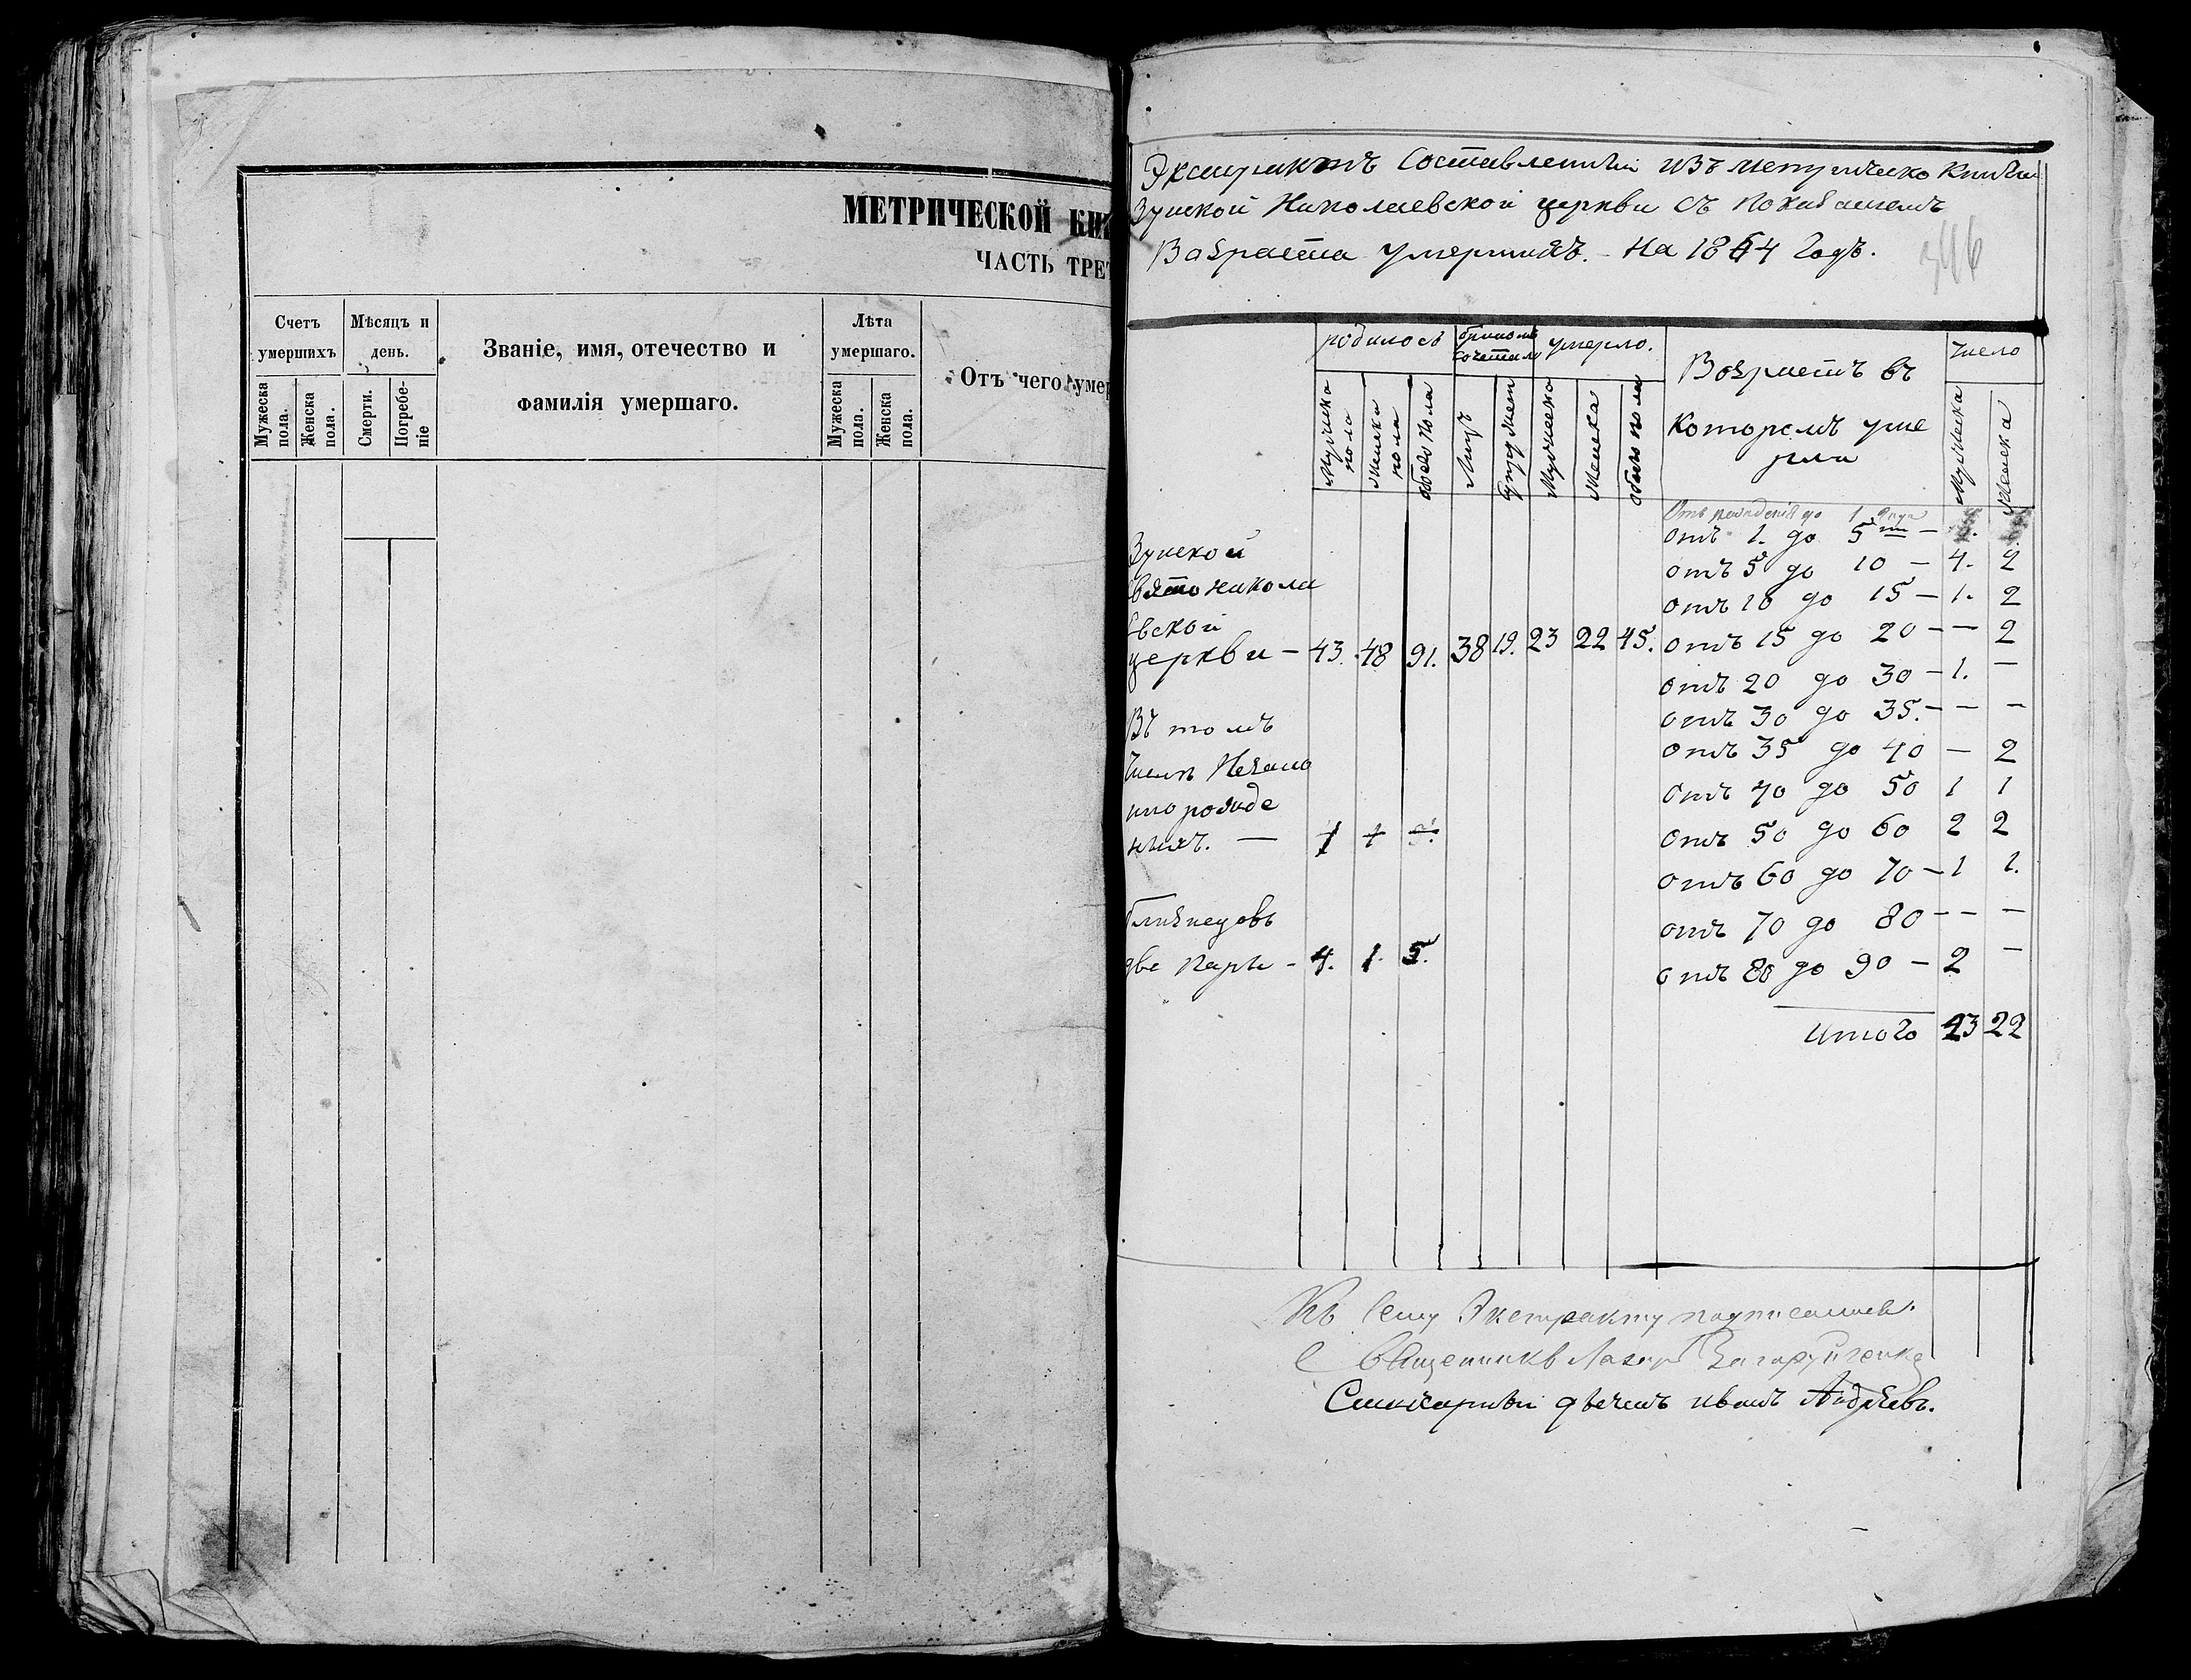 МЕТРИЧЕСКОЙ КНИ
ЧАСТЬ ТРЕТ
Счетъ умершихъ
Мѣсяцъ и день.
Званіе, имя, отечество и фамилія умершаго.
Лѣта умершаго.
Отъ чего умер
Мужеска пола.
Женска пола.
Смерти.
Погребе-ніе
Мужеска пола.
Женска пола.
Экстрактъ Составленный изъ метрическо Книги
Зунской Николаевской церкви съ показаніемъ
Возраста умершихъ. На 1864 Годъ.
346
родилось
бракомъ сочетало
умерло.
Возрастъ въ
которомъ уме
рли
Число
Мужеска пола
Женска пола
обоего пола
Лицъ
Супружест
Мужеска
Женска
обоего пола
Мужеска
Женска
Отъ рожденія до 1 года
отъ 1. до 5
Зунской
отъ 5 до 10 — 4. 2
Свято никола
отъ 10 до 15 — 1. 2
евской
церкви — 43. 48 91. 38 19. 23 22 45. отъ 15 до 20 — — 2
отъ 20 до 30 — 1. —
Въ томъ
отъ 30 до 35. — — —
числѣ Незако
отъ 35 до 40 — 2
норожде
отъ 40 до 50 1 1
ныхъ. — 1 1
отъ 50 до 60 2 2
отъ 60 до 70 — 1 1.
близнецовъ
отъ 70 до 80 — — —
две пары — 4. 1. 5.
отъ 80 до 90 — 2 —
итого 23 22
Къ сему Экстракту подписались.
Священникъ Лазарь
дьячекъ иванъ Андреевъ.